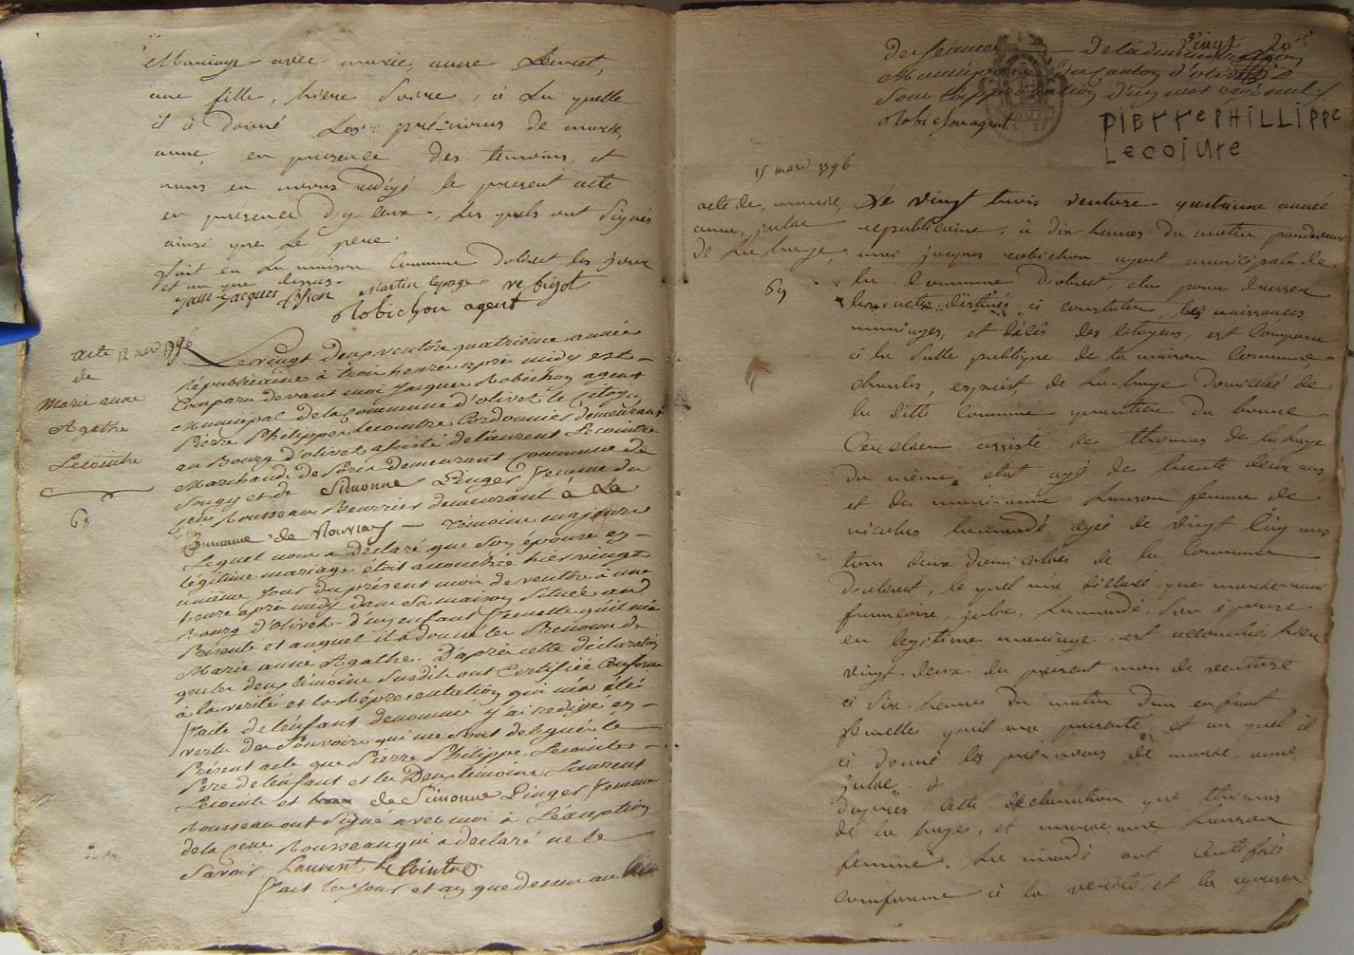 Mariage avec marie anne
une fille, hiere soire, à la quelle
il a donné les prenoms de marie
anne, en presence des temoins, et
nous en avons redigé le present acte
en presence d'y ceux, les quels ont signés
ainsi que le pere.
fait en la maison Commune d'olivet les jour
et an que dessus.
Jean Jacques martin lepage ve bigot
Robichon agent
acte 12 mars 1796
de
Marie anne
Agathe
Lecointre
69
Le vingt deux ventôse quatrieme année
Républicaine à trois heures après midy est
Comparu devant moi Jacques Robichon agent
Municipal de la Commune d'olivet le Citoyen
Pierre Philippe Lecointre Cordonnier demeurant
au Bourg d'olivet assisté de laurent Lecointre
Marchand de demeurant Commune de
Sougy et de Simonne Pinger femme du
Rousseau demeurant à La
Commune de temoins majeurs
Lequel nous a déclaré que Son épouse en
legitime mariage etoit accouchée hier vingt
unieme jour du présent mois de ventose à une
heure après midy dans Sa maison Située au
Bourg d'olivet d'un enfant femelle qu'il m'a
Présenté et auquel il a donné les Prenoms de
Marie anne Agathe. D'après cette déclaration
que les deux témoins Susdit ont Certifiée Conforme
à la verité et la Représentation qui m'a été
faite de l'enfant denommé j'ai redigé en
vertu des Pouvoirs qui me Sont delegués le
Présent acte que Pierre Philippe Lecointre
Pere de l'enfant et les Deux témoins Laurent
Lecointe et de Simonne Pinger femme
Rousseau ont Signé avec moi à l'exception
de la femme Rousseau qui a declaré ne le
Savoir Laurent le Cointre
fait les jour et an que dessus au
vingt
Municipale du canton d'olivet
Sous l'approbation d'un mot rayé nul
Robichon agent
PIErrePHILLIPPE
Lecoiure
15 mars 1796
acte de, marie,
anne, julie
de La hayes
69
Le vingt trois ventose quatrieme année
republicaine, à dix heures du matin pardevant
moi jacques robichon agent municipale de
la Commune d'olivet, élu pour dresser
les actes destinés à constater les naissances
mariages, et décès des citoyens, est comparu
à la salle publique de la maison Commune
charles, de La haye domicilié de
la ditte Commune du bourg
Lequel assisté de thomas de la haye
du même etat agé de trente deux ans
et de marie anne femme de
nicolas agée de vingt Cinq ans
tous deux domiciliés de la Commune
d'olivet, le quel m'a déclaré que marie anne
francoise, julie, son epouse
en legitime mariage est accouchée hier
vingt deux du present mois de ventose
à Six heures du matin d'un enfant
femelle qu'il m'a presenté et au quel il
a donné les prenoms de marie anne
julie,
d'après cette déclaration que thomas
de la hayes, et marie anne
femme ont Certifiée
conforme à la verité et la